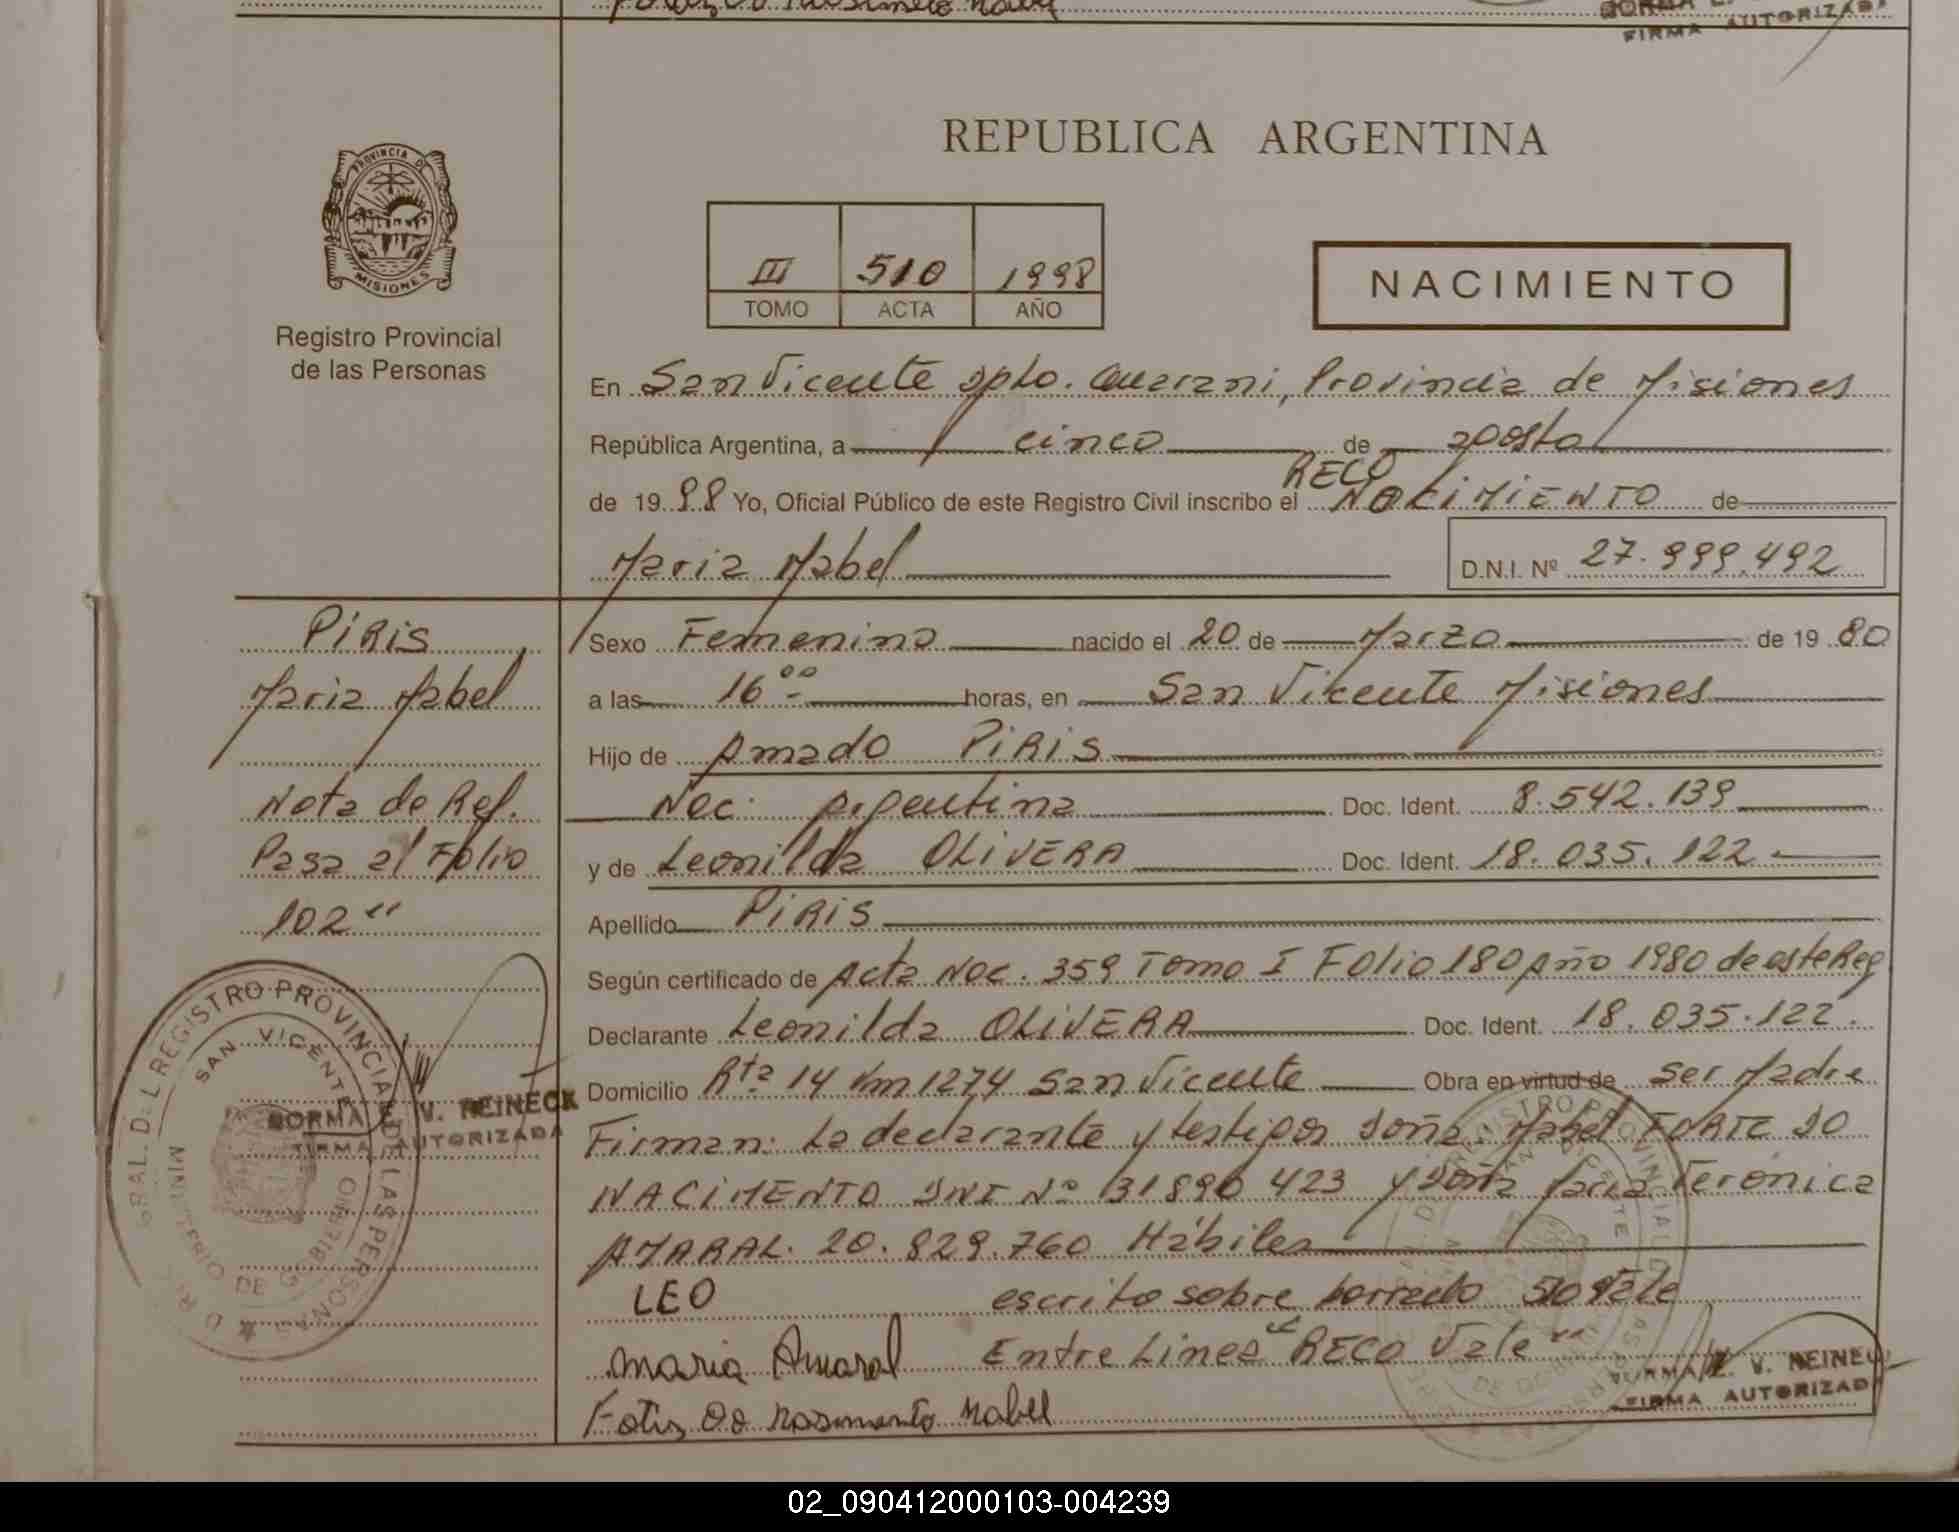 FIRMA AUTORIZADA
REPUBLICA ARGENTINA
PROVINCIA DE
MISIONES
Registro Provincial
de las Personas
III 510 1998
TOMO ACTA AÑO
NACIMIENTO
En San Vicente Dpto. Guarani, Provincia de Misiones
República Argentina, a cinco de agosto
RECO
de 1998 Yo, Oficial Público de este Registro Civil inscribo el NACIMIENTO de
Maria Mabel D.N.I. Nº 27.999.492
PIRIS
Maria Mabel
Nota de Ref.
Pasa al Folio
102"
Sexo Femenino nacido el 20 de Marzo de 1980
a las 16ºº horas, en San Vicente Misiones
Hijo de Amado PIRIS
Nac. Argentina Doc. Ident. 8.542.139
y de Leonilda OLIVERA Doc. Ident. 18.035.122
Apellido PIRIS
Según certificado de Acta Nac. 359 Tomo I Folio 180 Año 1980 de este Reg
Declarante Leonilda OLIVERA Doc. Ident. 18.035.122.
Domicilio Rta 14 Km 1274 San Vicente Obra en virtud de ser Madre
Firman: La declarante y testigos Doña: Mabel DO
NACIMENTO DNI Nº 31890 423 y Doña Maria Veronica
AMARAL. 20.829.760 Hábiles
LEO escrito sobre borrado 510 Vale
Maria Amaral Entre Linea "RECO Vale"
Do Nasimento Mabel
GRAL. DEL REGISTRO PROVINCIAL DE LAS PERSONAS
SAN VICENTE
MINISTERIO DE GOBIERNO
NORMA E. V. REINECK
FIRMA AUTORIZADA
NORMA E. V. REINECK
FIRMA AUTORIZADA
02_090412000103-004239